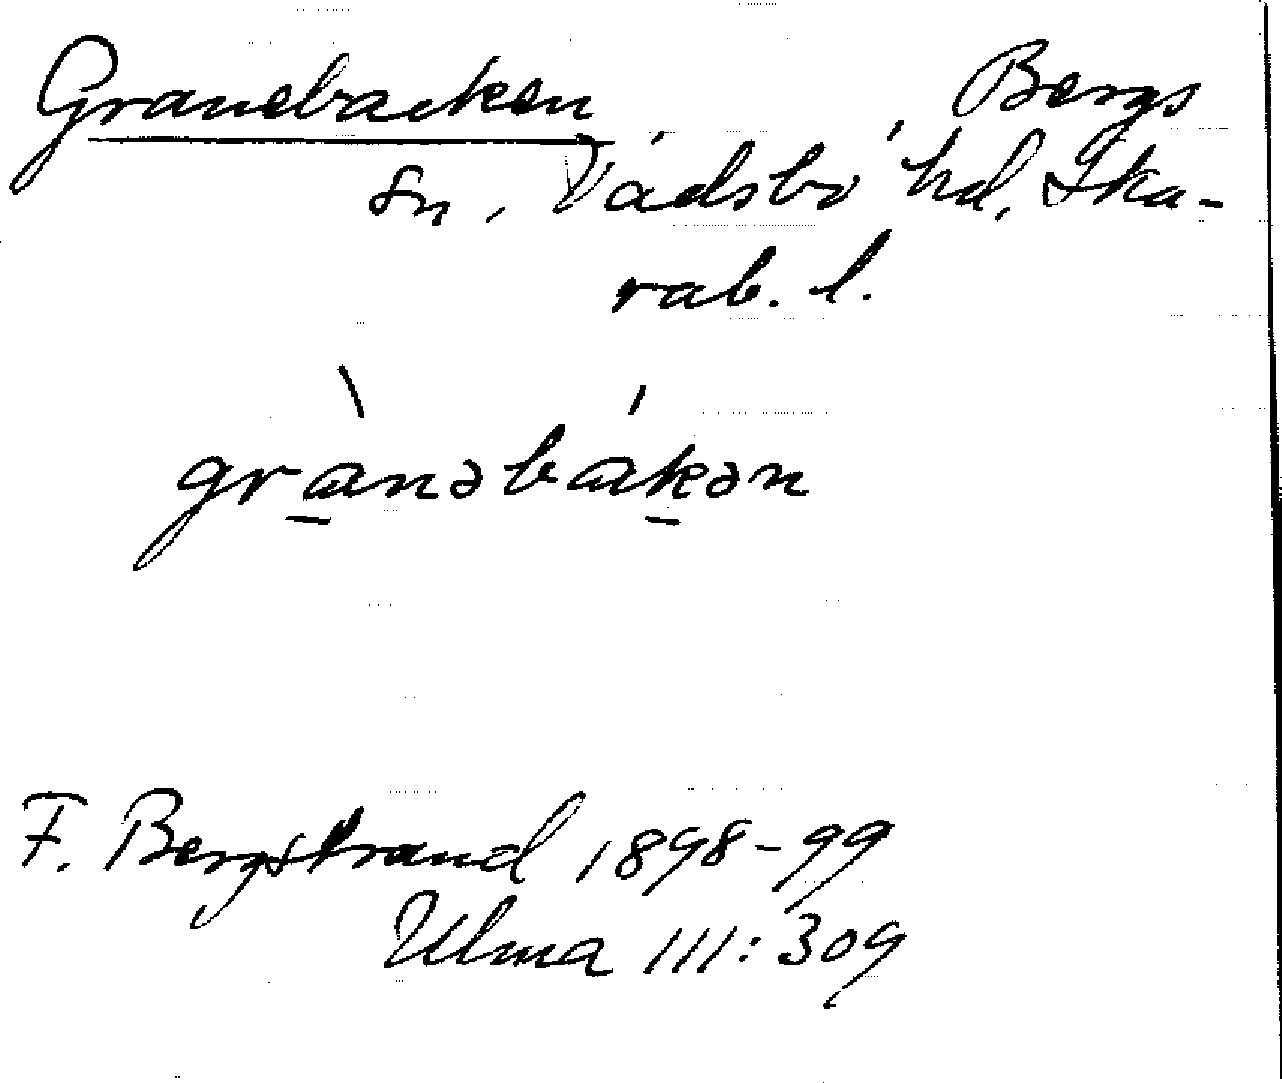 Granebacken Bergs
sn, Vadsbo hd, Ska-
rab. l.
grànəbákən
F. Bergstrand 1898-99
Ulma 111:309